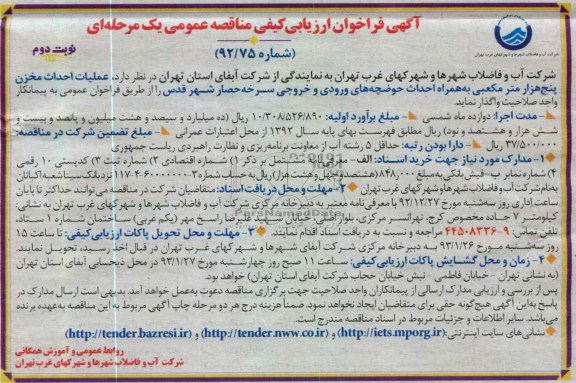 آگهی فراخوان ارزیابی کیفی مناقصه عمومی یک مرحله‌ای
(شماره ۹۲/۷۵)
نوبت دوم
شرکت آب و فاضلاب شهرها و شهرکهای غرب تهران
شرکت آب و فاضلاب شهرها و شهرکهای غرب تهران به نمایندگی از شرکت آبفای استان تهران در نظر دارد، عملیات احداث مخزن
پنج‌هزار متر مکعبی به‌همراه احداث حوضچه‌های ورودی و خروجی سرخه‌حصار شهر قدس را از طریق فراخوان عمومی به پیمانکار
واجد صلاحیت واگذار نماید.
- مدت اجرا: دوازده ماه شمسی - مبلغ برآورد اولیه: ۱۰/۳۰۸/۵۲۶/۸۹۰ ریال (ده میلیارد و سیصد و هشت میلیون و پانصد و بیست و
شش هزار و هشتصد و نود) ریال مطابق فهرست بهای پایه سال ۱۳۹۲ از محل اعتبارات عمرانی - مبلغ تضمین شرکت در مناقصه:
۳۷/۵۰۰/۰۰۰ ریال - دارا بودن رتبه: حداقل ۵ رشته آب از معاونت برنامه‌ریزی و نظارت راهبردی ریاست جمهوری
۱- مدارک مورد نیاز جهت خرید اسناد: الف - مشتمل بر ذکر ۱) شماره اقتصادی ۲) شماره ثبت ۳) کدپستی ۱۰ رقمی
۴) شماره نمابر ب- فیش بانکی به مبلغ ۸۴۸/۰۰۰ (هشتصدوچهل‌وهشت‌هزار) ریال به‌حساب شماره نزدبانک‌سینا شعبه اکباتان
به‌نام شرکت آب و فاضلاب شهرها و شهرکهای غرب تهران ۲- مهلت و محل دریافت اسناد: متقاضیان شرکت در مناقصه می‌توانند حداکثر تا پایان
ساعت اداری روز سه‌شنبه مورخ ۹۲/۱۲/۲۷ با معرفی‌نامه معتبر به دبیرخانه مرکزی شرکت آب و فاضلاب شهرها و شهرکهای غرب تهران به نشانی
کیلومتر ۷ جاده مخصوص کرج، تهرانسر مرکزی، ضلع راسخ مهر (یکم غربی) ساختمان شماره ۱ ستاد،
تلفن تماس: ۹-۴۴۵۰۸۳۳۶ مراجعه و نسبت به دریافت اسناد اقدام نمایند ۳- مهلت و محل تحویل پاکات ارزیابی کیفی: تا ساعت ۱۵
روز سه‌شنبه مورخ ۹۳/۱/۲۶ به دبیرخانه مرکزی شرکت آبفای شهرها و شهرکهای غرب تهران در قبال اخذ رسید، تحویل نمایند.
۴- زمان و محل گشایش پاکات ارزیابی کیفی: ساعت ۱۱ صبح روز چهارشنبه مورخ ۹۳/۱/۲۷ در محل ذیحسابی آبفای استان تهران
(به نشانی تهران - خیابان فاطمی - نبش خیابان حجاب شرکت آبفای استان تهران) خواهد بود.
پس از بررسی و ارزیابی مدارک ارسالی از پیمانکاران واجد صلاحیت جهت برگزاری مناقصه دعوت به‌عمل خواهد آمد. بدیهی است ارسال مدارک در
پاسخ به‌این آگهی هیچ‌گونه حقی برای متقاضیان ایجاد نخواهد نمود. ضمناً هزینه درج هر دو مرحله چاپ آگهی مربوط به این مناقصه به‌عهده برنده
می‌باشد. سایر اطلاعات و جزئیات مربوط در اسناد مناقصه مندرج است.
نشانی‌های سایت اینترنتی: (http://iets.mporg.ir) و (http://tender.nww.co.ir) و (http://tender.bazresi.ir)
روابط عمومی و آموزش همگانی
شرکت آب و فاضلاب شهرها و شهرکهای غرب تهران